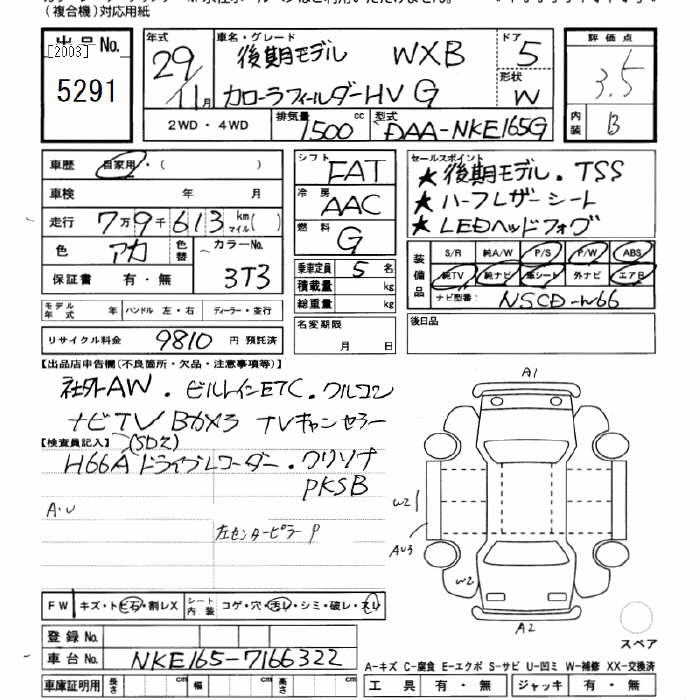 (複合機)対応用紙
出品No.
[2003]
5291
年式 29/11月
車名・グレード 後期モデル WXB
カローラフィールダーHV G
ドア 5
形状 W
2WD・4WD
排気量 1500cc
型式 DAA-NKE165G
評価点 3.5
内装 B
車歴 自家用・( )
車検 年 月
走行 7万9千613 km マイル( )
色 アカ 色替 カラーNo. 3T3
保証書 有・無
モデル年式 年 ハンドル 左・右 ディーラー・並行
リサイクル料金 9810 円 預託済
シフト FAT
冷房 AAC
燃料 G
乗車定員 5 名
積載量 kg
総重量 kg
名変期限
月 日
セールスポイント
★後期モデル.TSS
★ハーフレザーシート
★LEDヘッドフォグ
装備品
S/R 純A/W P/S P/W ABS
純TV 純ナビ 革シート 外ナビ エアB
ナビ型番: NSCD-W66
後日品
【出品店申告欄(不良箇所・欠品・注意事項等)】
社外AW.ビルトインETC.クルコン
ナビTV Bカメラ TVキャンセラー
【検査員記入】
(SDZ)
H66A ドライブレコーダー.クリソナ
PKSB
A・U
左センターピラー P
A1
W2
AU3
W2
A2
スペア
FW キズ・トビ石・割レX
シート内装 コゲ・穴・汚レ・シミ・破レ・スレ
登録No.
車台No. NKE165-7166322
車庫証明用 長さ cm 幅 cm 高さ cm
A-キズ C-腐食 E-エクボ S-サビ U-凹ミ W-補修 XX-交換済
工具 有・無 ジャッキ 有・無